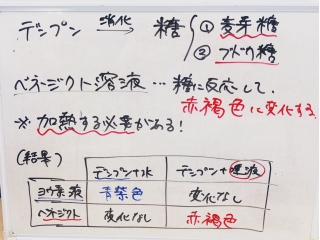 デンプン 消化→ 糖 ① 麦芽糖
② ブドウ糖
ベネージクト溶液 … 糖に反応して.
赤褐色に変化する.
※ 加熱する必要がある!
(結果)
デンプン+水 デンプン+だ液
ヨウ素液 青紫色 変化なし
ベネジクト 変化なし 赤褐色